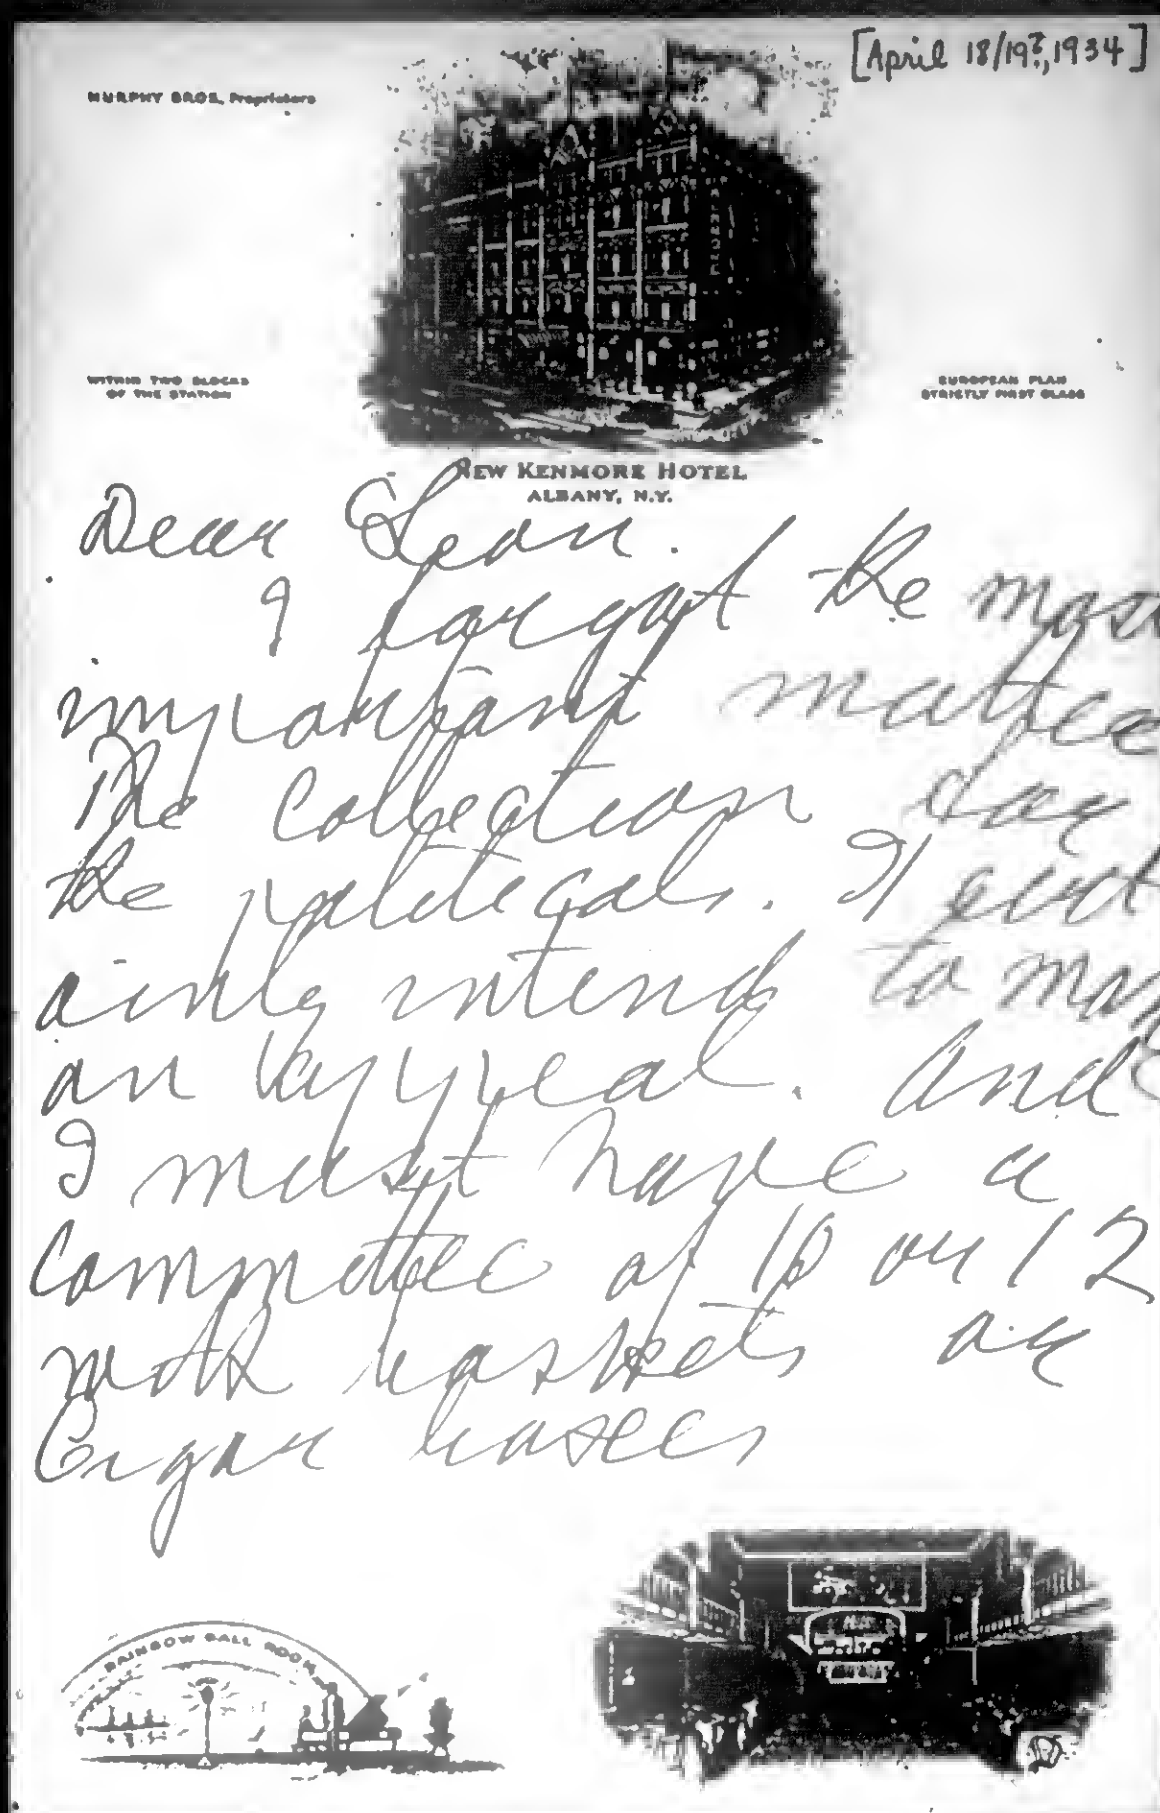 [April 18/19?, 1934]
MURPHY BROS., Proprietors
WITHIN TWO BLOCKS
OF THE STATION
EUROPEAN PLAN
STRICTLY FIRST CLASS
NEW KENMORE HOTEL
ALBANY, N.Y.
Dear Leon.
I forgot the most
important matter
The Collection for
the politicals. I cert
ainly intend to make
an appeal. And
I must have a
Committee of 10 or 12
with baskets or
Cigar boxes
RAINBOW BALL ROOM